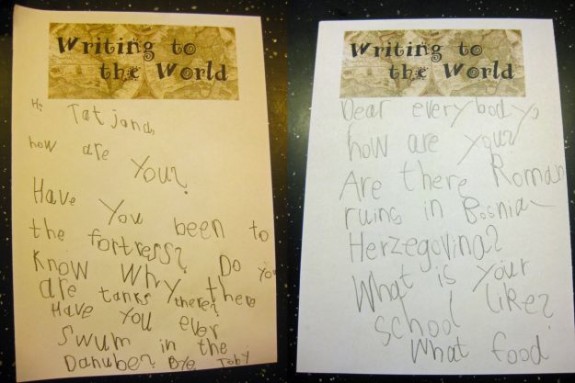 Writing to
the World
Hi Tatjana,
how are
you?
Have you been to
the fortress? Do you
know why there
are tanks there?
Have you ever
swum in the
Danube? Bye Toby
Writing to
the World
Dear everybody,
how are you?
Are there Roman
ruins in Bosnia
Herzegovina?
What is your
school like?
What food